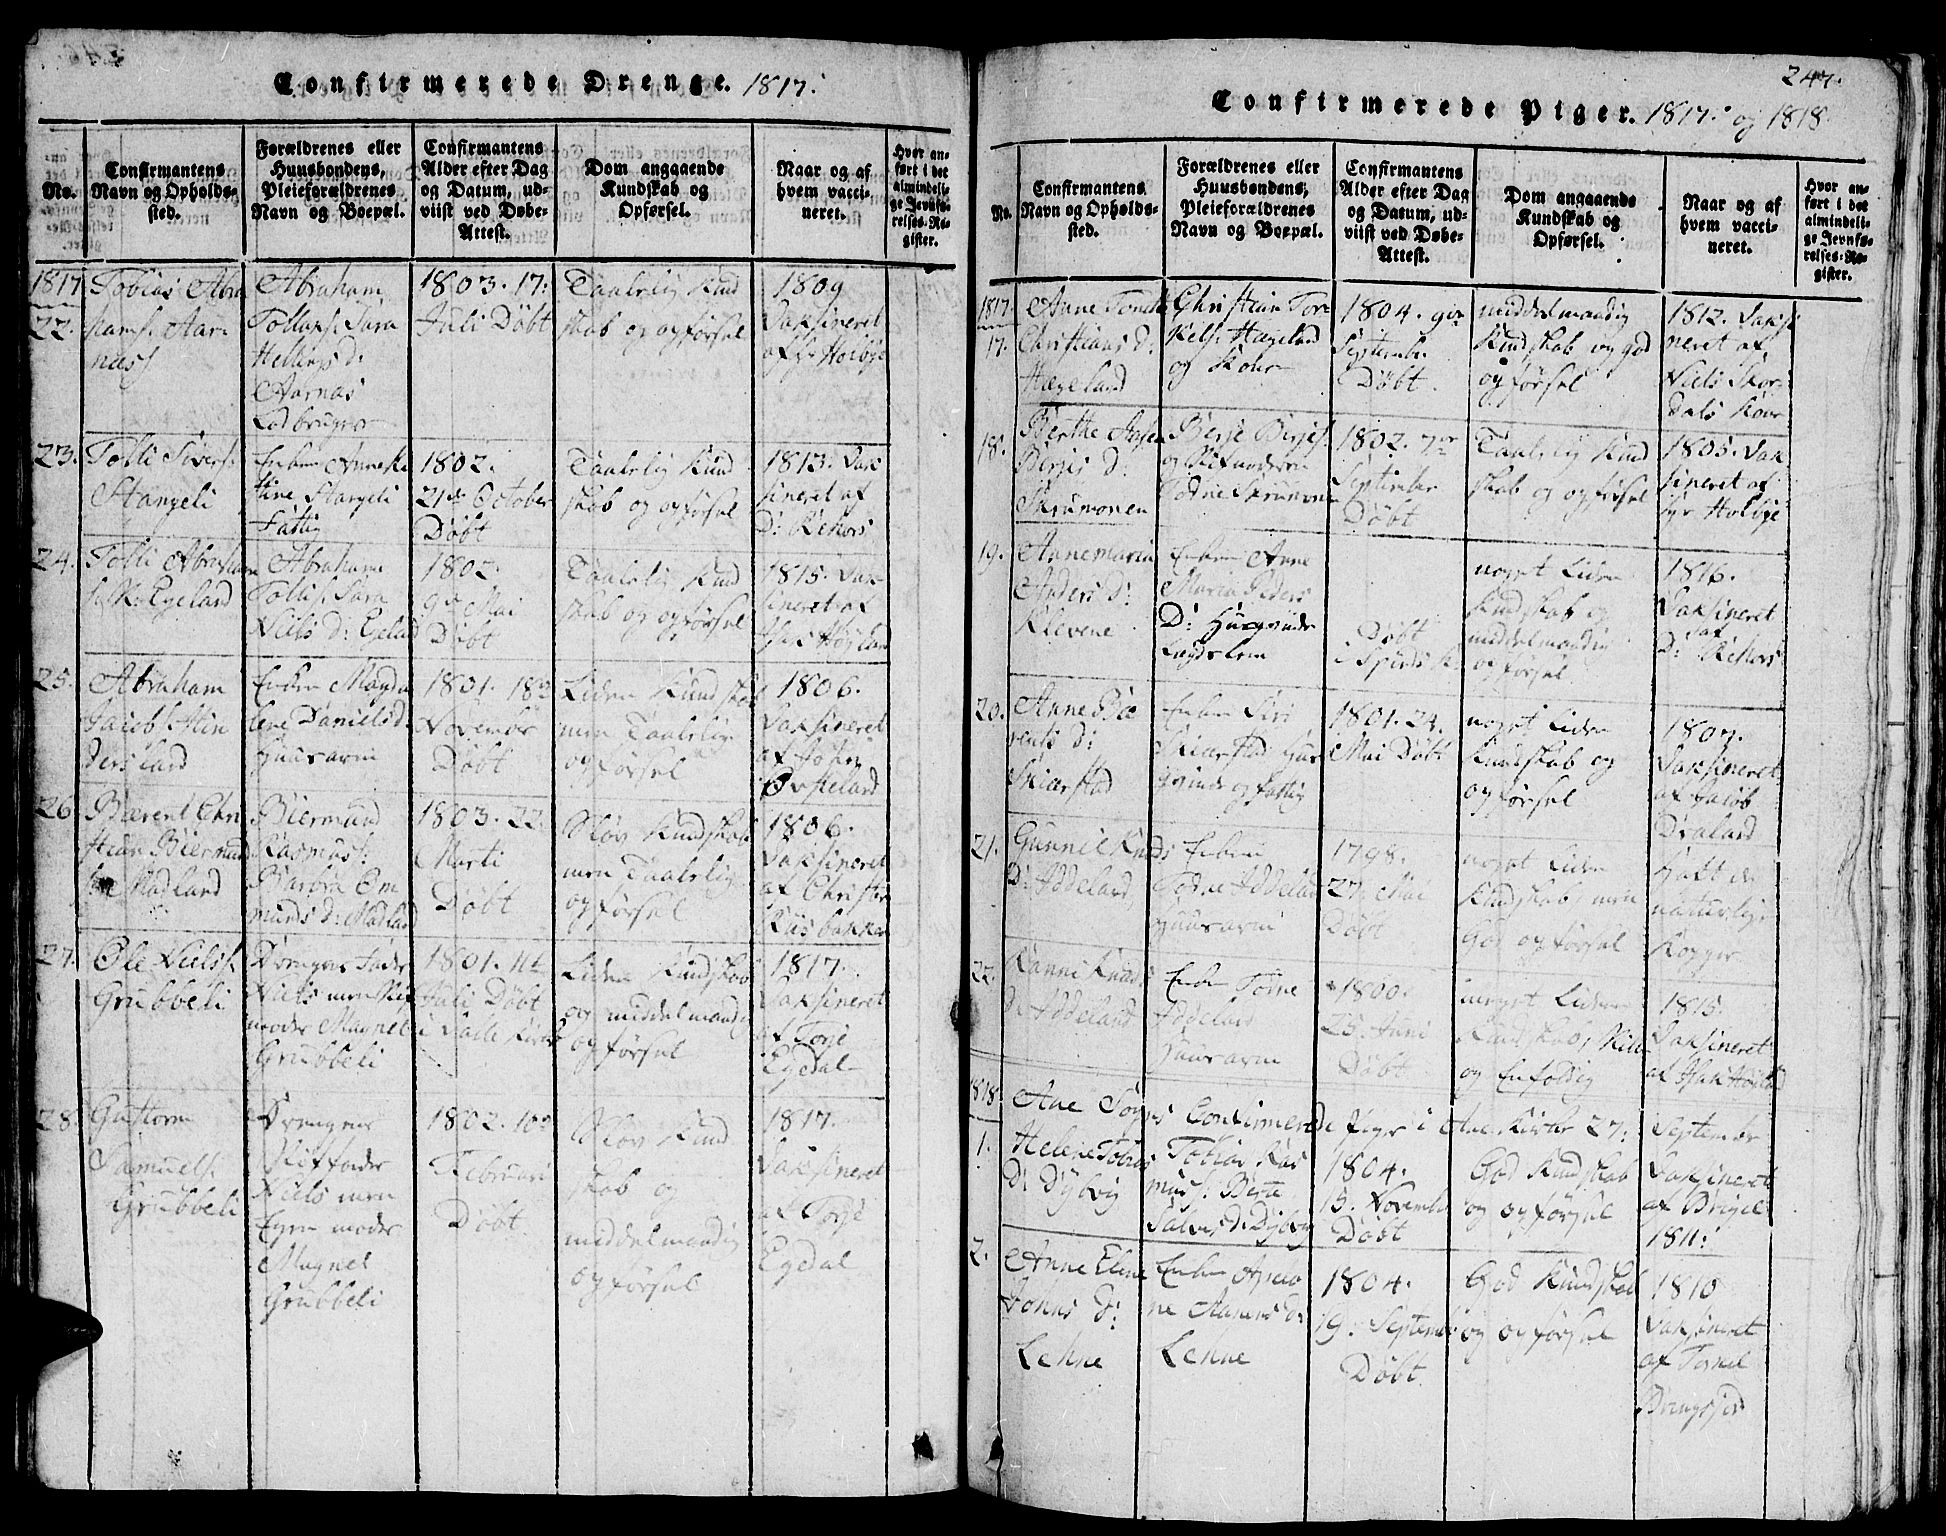 Confirmerede Drenge. 1817.
No.
Confirmantens Navn og Opholdssted.
Forældrenes eller Huusbondens, Pleieforældrenes Navn og Boepæl.
Confirmantens Alder efter Dag og Datum, udviist ved Døbe-Attest.
Dom angaaende Kundskab og Opførsel.
Naar og af hvem vaccineret.
Hvor anført i det almindelige Jevnførelses-Register.
1817
22.
Tobias Abra
hams. Aar
næss
Abraham
Tollaps. Sara
Hellings d:
Aarnæs
1803. 17:
Juli Døbt
Taalelig Kund
skab og opførsel
1809
Vaksineret
af Hr Holbye
23.
Tolli Sivers.
Stangeli
Enken Anne Ki
stine Stangeli
Fattig
1802.
21de October
Døbt
Taalelig Kund
skab og opførsel
1813. Vak
sineret af
D: Rehors
24.
Tolli Abraham
s. K: Egeland
Abraham
Tollis. Sara
Niels d: Egeland
1802.
9de Mai
Døbt
Taalelig Kund
skab og opførsel
1815. Vak
sineret af
Isak Høyland
25.
Abraham
Jacobs.
dersland
Enken Magda
lene Daniels d.
Huusarm
1801. 18de
November
Døbt
Liden Kundskab
men Taalelig
opførsel
1806.
Vaksineret
af John
Øvsteland
26
Bærent Chri
stian Biermund
s. Madland
Biermund
Rasmus.
Barbra Om
munds d: Madland
1803. 22.
Marti
Døbt
Sløv Kundskab
men Taalelig
opførsel
1806.
Vaksineret
af Christen
Riisbakken
27.
Ole Niels.
Grubbeli
Drengens Fader
Niels men Stif
moder Magnel
Grubbeli
1801. 11te
Juli Døbt
i Valle Kirke
Liden Kundskab
og middelmaadig
opførsel
1817.
Vaksineret
af Torje
Egdal
28.
Guttorm
Samuels.
Grubbeli
Drengens
Stiffader
Niels men
Egen moder
Magnel
Grubbeli
1802. 10de
Februari
Døbt
Sløv Kund
skab og
middelmaadig
opførsel
1817.
Vaksineret
af Torje
Egdal
247.
Confirmerede Piger. 1817. og 1818
No.
Confirmantens Navn og Opholdssted.
Forældrenes eller Huusbondens, Pleieforældrenes Navn og Boepæl.
Confirmantens Alder efter Dag og Datum, udviist ved Døbe-Attest.
Dom angaaende Kundskab og Opførsel.
Naar og af hvem vaccineret.
Hvor anført i det almindelige Jevnførelses-Register.
1817.
17.
Anne Tonette
Christians d:
Hægeland
Christian Tor
Kels. Hægeland
og Kone
1804. 9de
September
Døbt.
middelmaadig
Kundskab og god
opførsel
1812. Vaksi
neret af
Niels Skor
dals Kone
18.
Berthe
Berjes d:
Skrumoen
Berje Berjes.
og Stifmoderen
Todne Skrumoen
1802. 7de
September
Døbt
Taalelig Kund
skab og opførsel
1805. Vak
sineret af
Hr Holbye
19.
Annemaria
Anders d:
Klevene
Enken Anne
Maria Peders
D: Huuqvinde
Lægdslem
Døbt
noget Liden
Kundskab og
middelmaadig
opførsel.
1816.
Vaksineret
af
D: Rehors
20.
Anne Bæ
rents d:
Skierstad
Enken Siri
Skierstad Huus
qvinde og fattig
1801. 24.
Mai Døbt
noget Liden
Kundskab og
opførsel
1807.
Vaksineret
af Jacob
Draland
21.
Gunnil Knuds
D: Addeland
Enken
Todne Addeland
Huusarm
1798.
27. Mai
Døbt
noget Liden
Kundskab, men
God opførsel
Haft de
naturlige
Kopper
22.
Ranni Knuds
d: Addeland
Enken Todne
Addeland
Huusarm
1800.
25. Juni
Døbt
noget Liden
Kundskab,
og Enfoldig
1815.
Vaksineret
af Isak Høyland
1818.
Ane Sogns Confirmerede Piger i Ane Kirke 27: September
1.
Helene Tobias
D: Dybvig
Tobias Ras
mus. Berte
Salves d. Dybvig
1804.
15. November
Døbt
God Kundskab
og opførsel
Vaksineret
af Brigel
1811.
2.
Anne Elene
Jonas d:
Lehne
Enken Apelo
ne Aanens d:
Lehne
1804.
19: September
Døbt
God Kundskab
og opførsel
1810
Vaksineret
af Tornil
Bringsjord